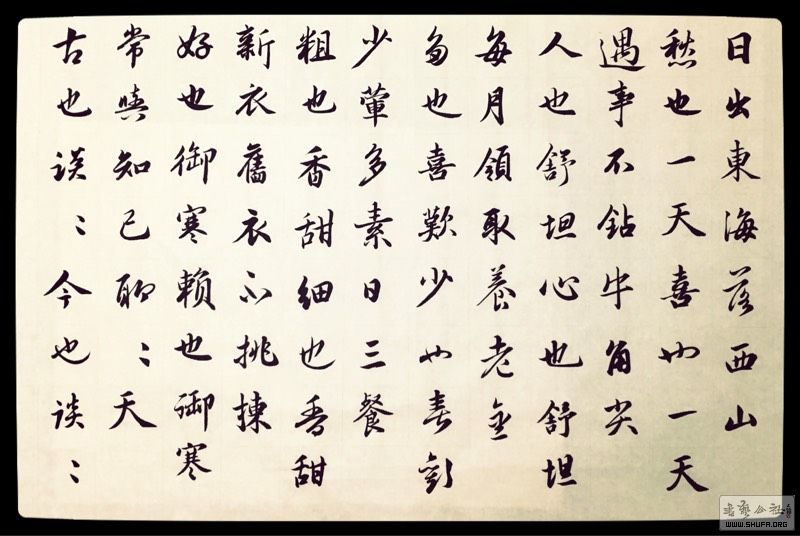 日出東海落西山
愁也一天喜也一天
遇事不鉆牛角尖
人也舒坦心也舒坦
每月領取養老金
多也喜歡少也喜歡
少葷多素日三餐
粗也香甜細也香甜
新衣舊衣不挑揀
好也御寒賴也御寒
常與知己聊〻天
古也談〻今也談〻
書藝公社
WWW.SHUFA.ORG